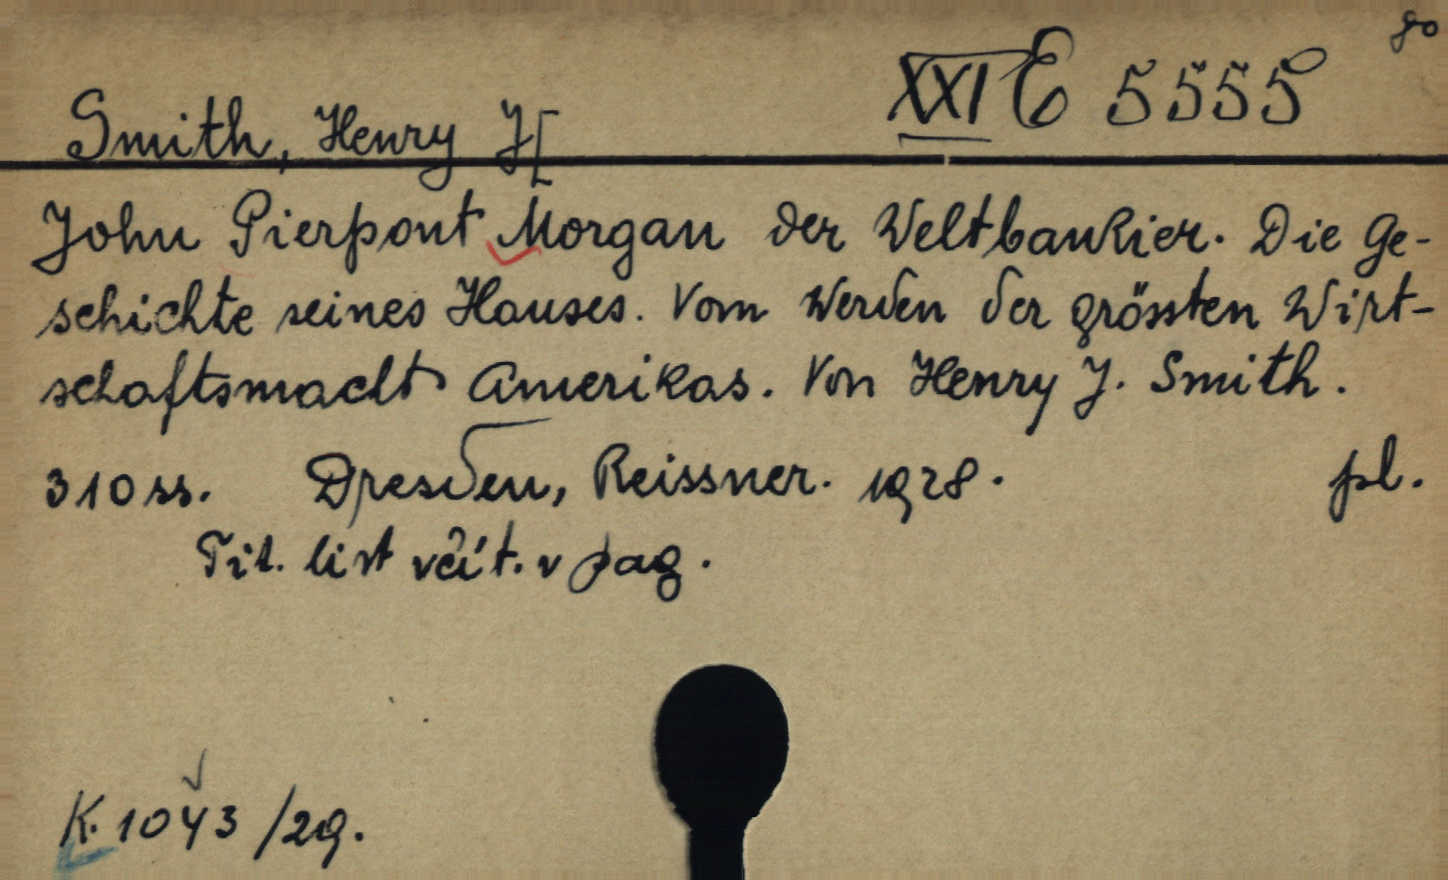 8o
XXI E 5555
Smith, Henry J[
John Pierpont Morgan der Weltbankier. Die Ge-
schichte seines Hauses. Vom Werden der grössten Wirt-
schaftsmacht Amerikas. Von Henry J. Smith.
310 ss. Dresden, Reissner. 1928. pl.
Tit. list včít. v pag.
K. 1043/29.